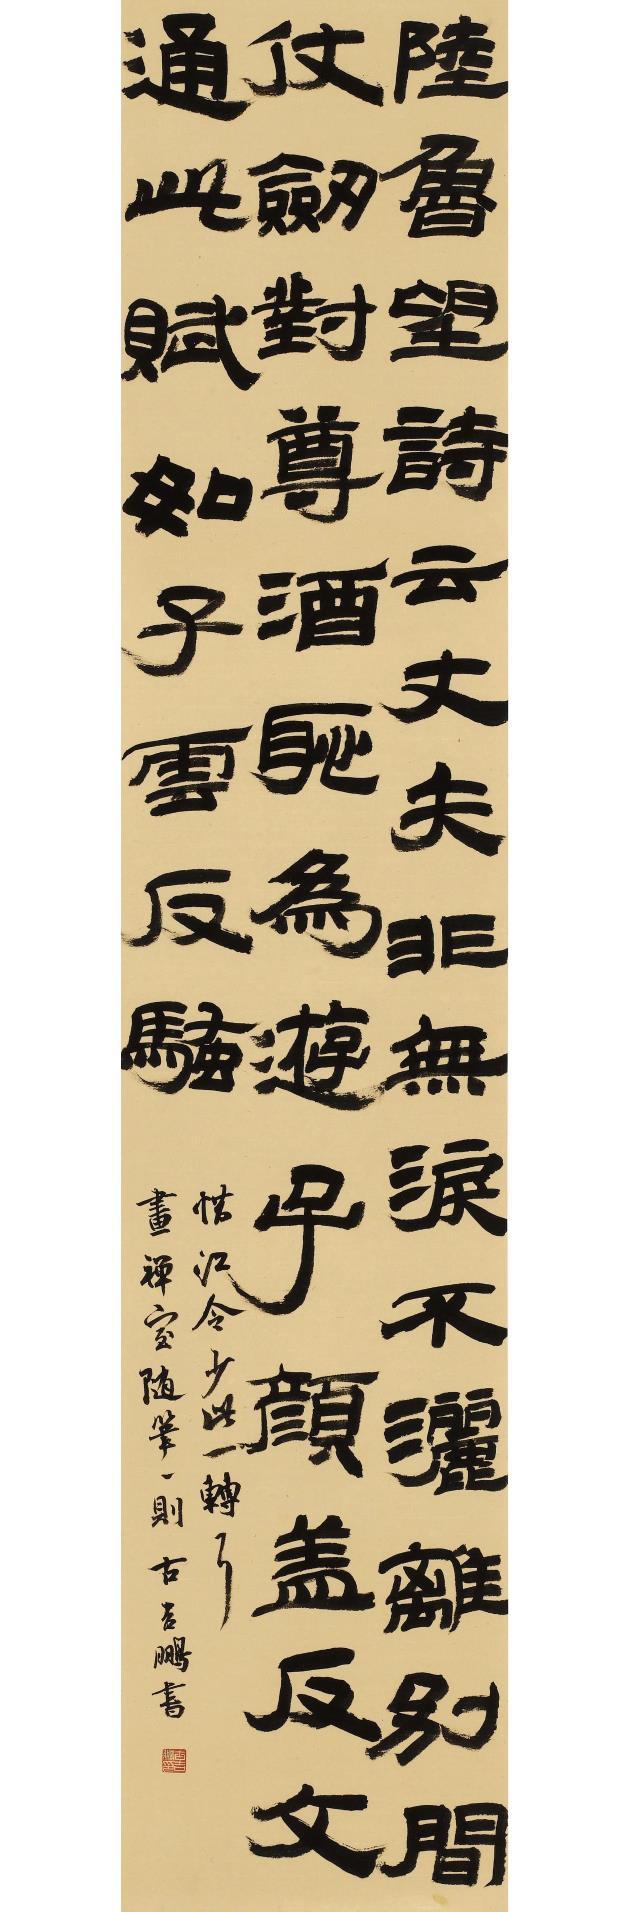 陸魯望詩云丈夫非無淚不灑離別間
仗劒對尊酒恥為游子顏蓋反文
通此賦如子雲反騷
惜江令少此一轉耳
畫禪室随筆一則 古吉鵬書